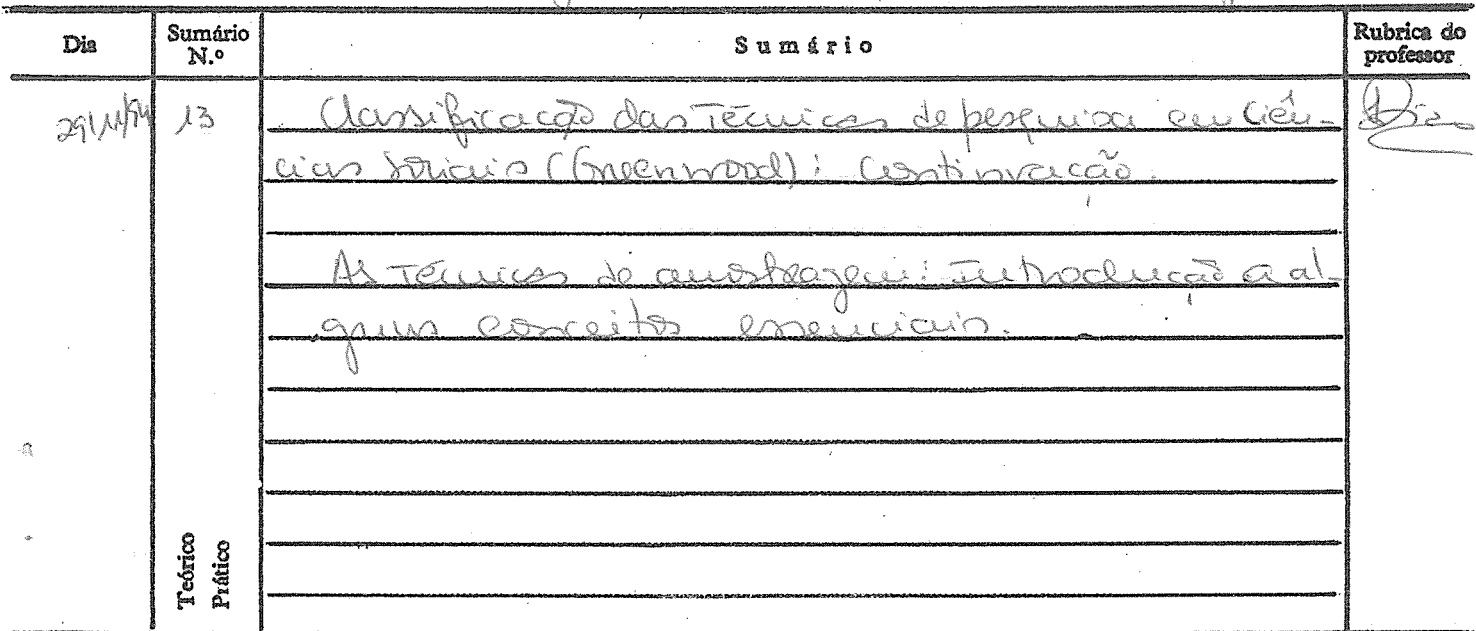 Dia Sumário N.º Sumário Rubrica do professor
29/11/94 13 Classificação das Técnicas de pesquisa em Ciên-
cias Sociais (Greenwood): Continuação.
As Técnicas de amostragem: Introdução a al-
guns conceitos essenciais.
Teórico
Prático